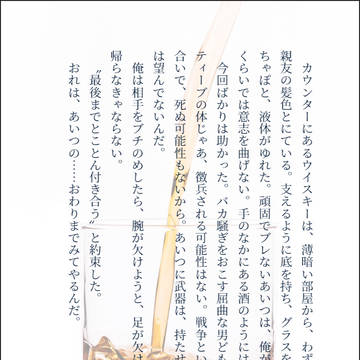 カウンターにあるウイスキーは、薄暗い部屋から、わず
親友の髪色とにている。支えるように底を持ち、グラス
ちゃぽと、液体がゆれた。頑固でブレないあいつは、俺が
くらいでは意志を曲げない。手のなかにある酒のようには
今回ばかりは助かった。バカ騒ぎをおこす屈曲な男ども
ティーブの体じゃあ、徴兵される可能性はない。戦争とい
合いで、死ぬ可能性もないから。あいつに武器は、持たせ
は望んでないんだ。
俺は相手をブチのめしたら、腕が欠けようと、足が欠け
帰らなきゃならない。
〝最後までとことん付き合う〟と約束した。
おれは、あいつの……おわりまでみてやるんだ。